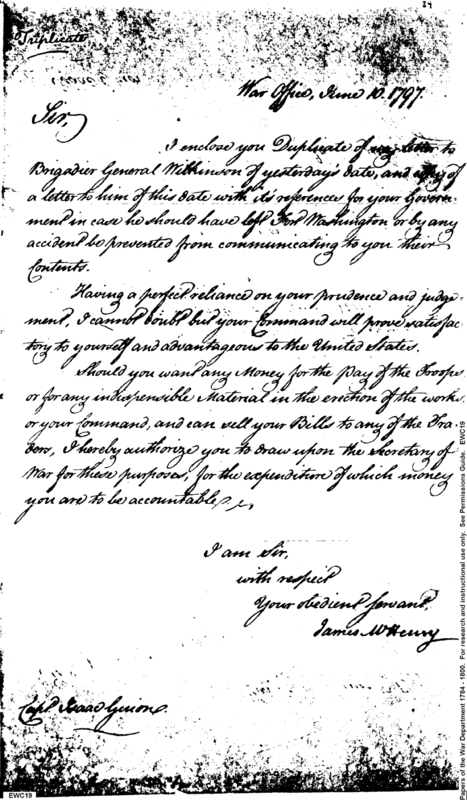 24
Triplicate
War Office, June 10. 1797.
Sir,
I enclose you Duplicate of my letter to
Brigadier General Wilkinson of yesterday's date, and copy of
a letter to him of this date with it's reference for your Govern-
ment in case he should have left Fort Washington or by any
accident be prevented from communicating to you their
Contents.
Having a perfect reliance on your prudence and judge-
ment, I cannot doubt but your Command will prove satisfac-
tory to yourself and advantageous to the United States.
Should you want any Money for the Pay of the Troops
or for any indispensible Material in the erection of the works
or your Command, and can sell your Bills to any of the Tra-
ders, I hereby authorize you to draw upon the Secretary of
War for these purposes, for the expenditure of which money
you are to be accountable.
I am Sir,
with respect
Your obedient servant,
James McHenry
Capt. Isaac Guion
EWC19
Papers of the War Department 1784 - 1800. For research and instructional use only. See Permissions Guide. EWC19